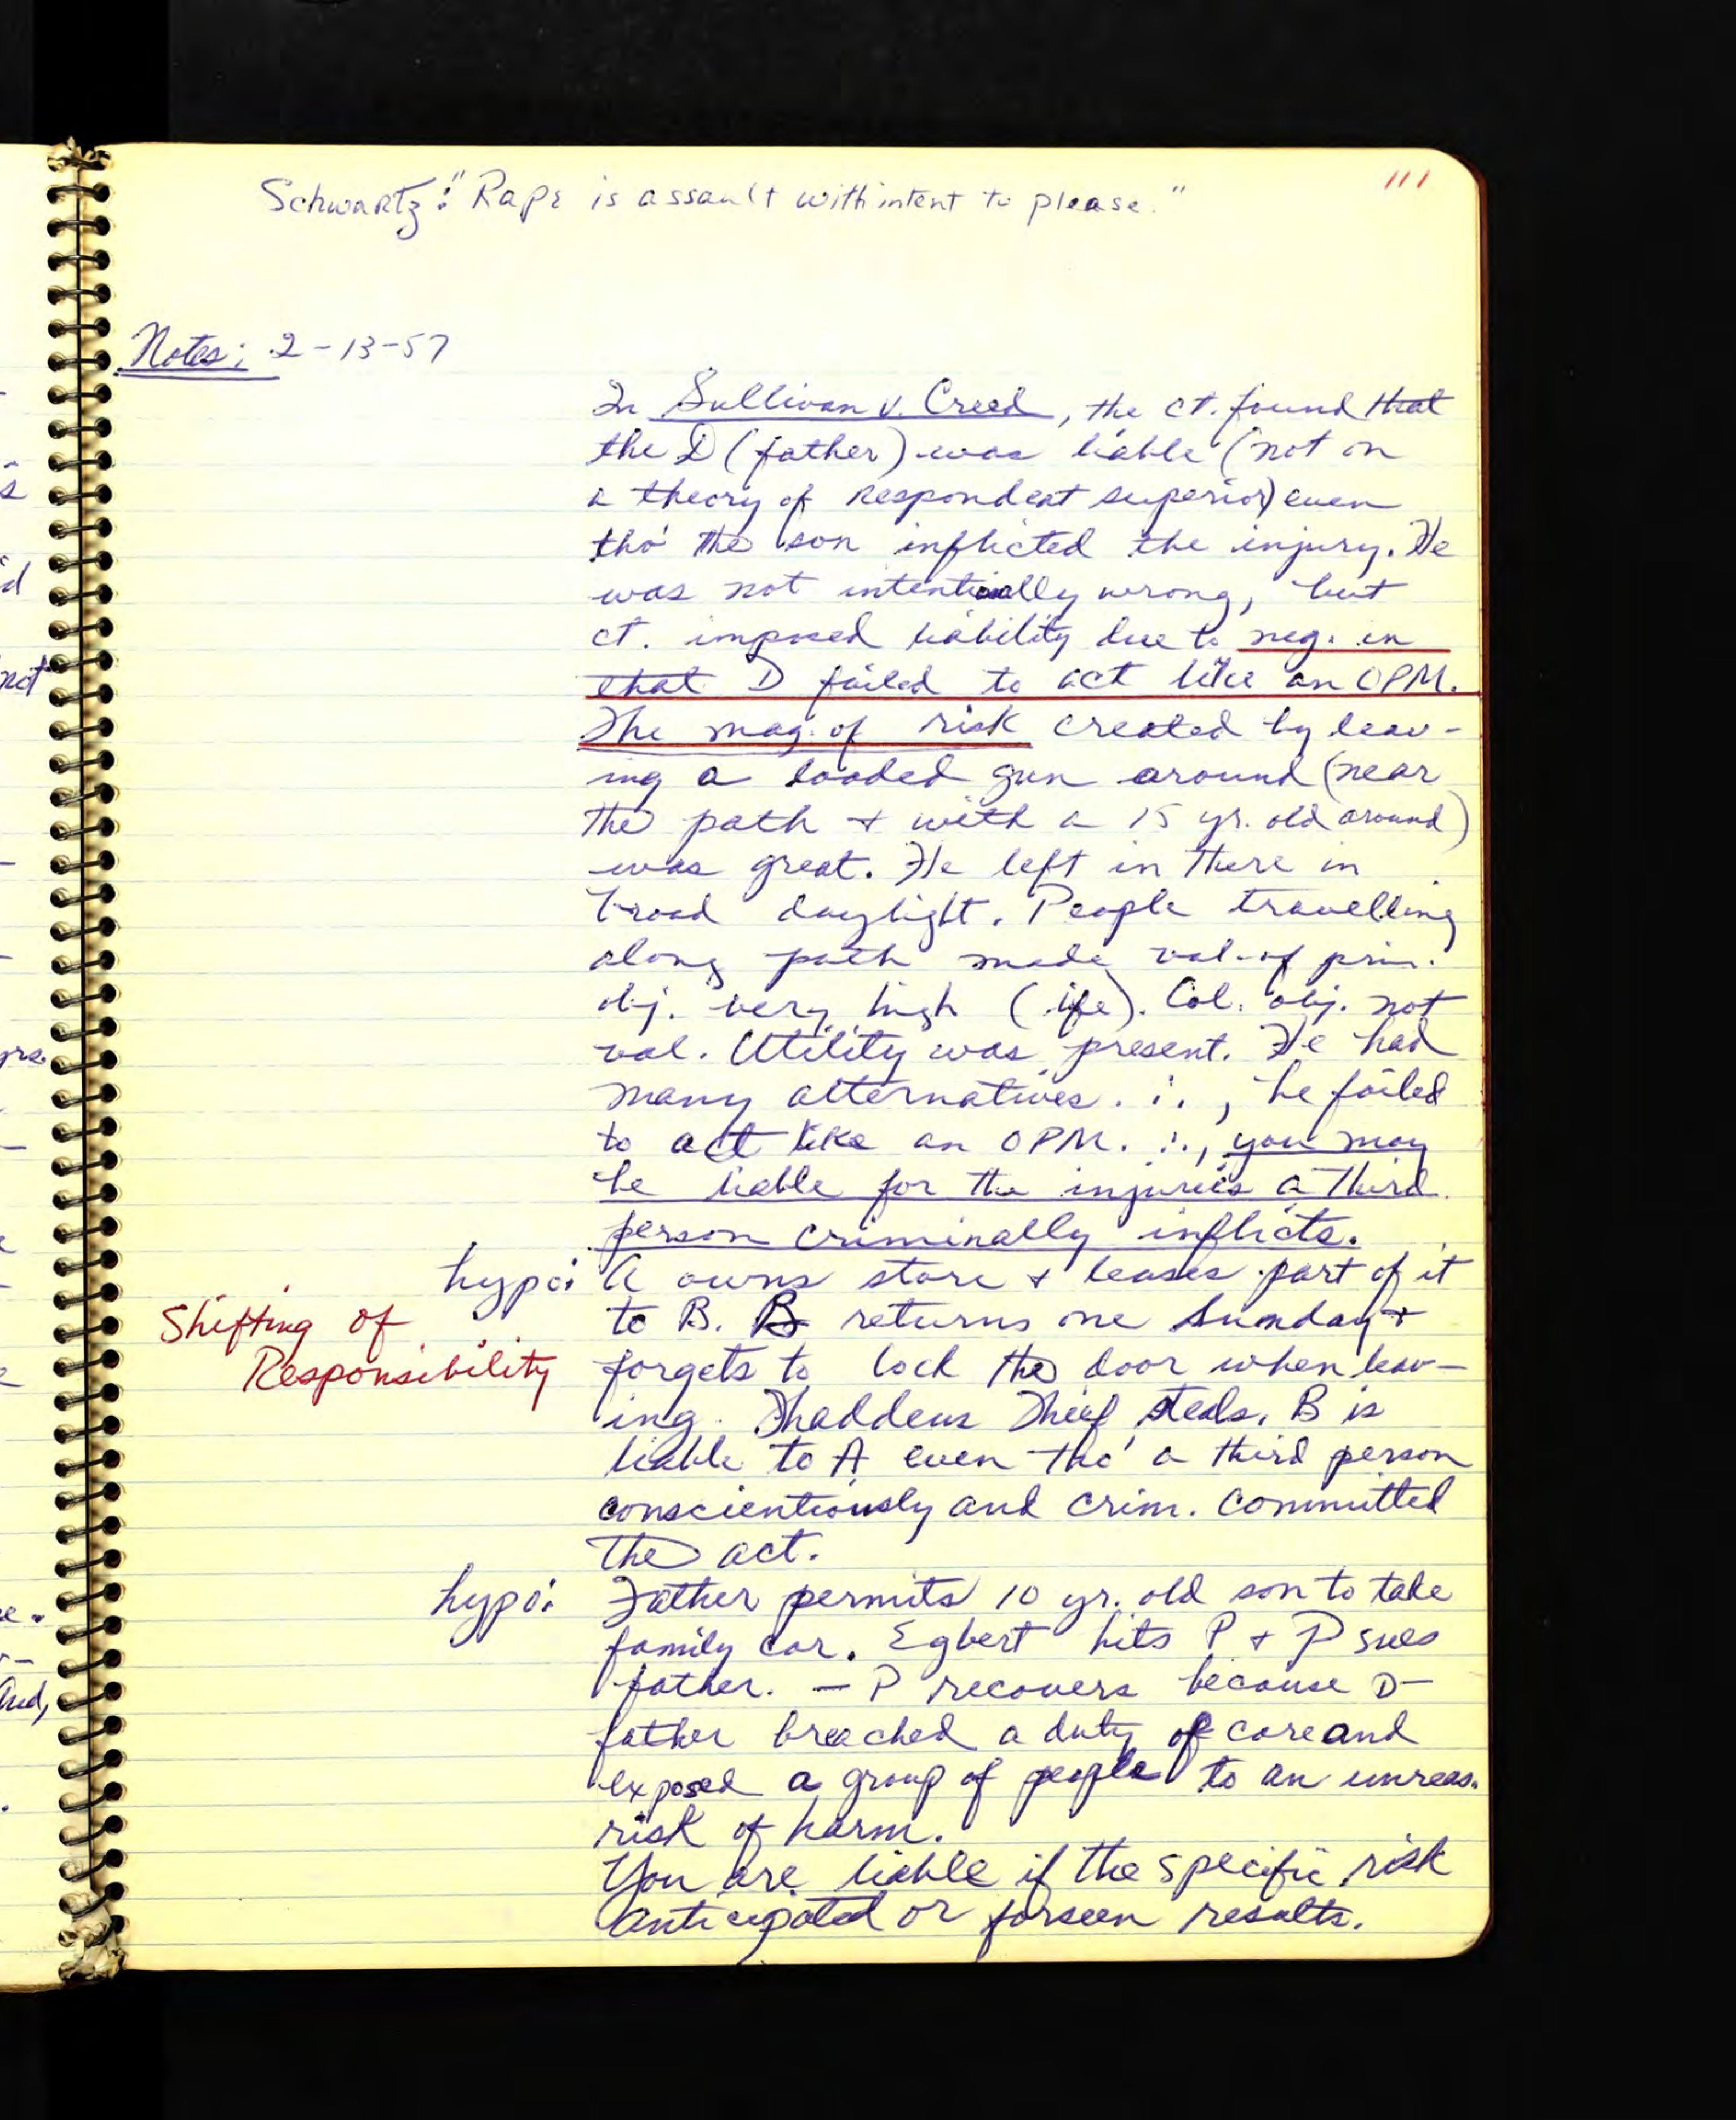 111
Schwartz: "Rape is assault with intent to please."
Notes: 2-13-57
In Sullivan v. Creed, the ct. found that
the D (father) was liable (not on
a theory of respondeat superior) even
tho' the son inflicted the injury. He
was not intentionally wrong, but
ct. imposed liability due to neg. in
that D failed to act like an OPM.
The mag. of risk created by leav-
ing a loaded gun around (near
the path + with a 15 yr. old around)
was great. He left in there in
broad daylight. People travelling
along path made val. of prin.
obj. very high (life). Col. obj. not
val. Utility was present. He had
many alternatives. ∴, he failed
to act like an OPM. ∴, you may
be liable for the injuries a third
person criminally inflicts.
hypo: A owns store + leases part of it
to B. B returns one Sunday +
Shifting of
Responsibility
forgets to lock the door when leav-
ing. Thaddeus Thief steals. B is
liable to A even tho' a third person
conscientiously and crim. committed
the act.
hypo: Father permits 10 yr. old son to take
family car. Egbert hits P + P sues
father. — P recovers because D-
father breached a duty of care and
exposed a group of people to an unreas.
risk of harm.
You are liable if the specific risk
anticipated or forseen results.
s
id
not
yrs.
e.
and,